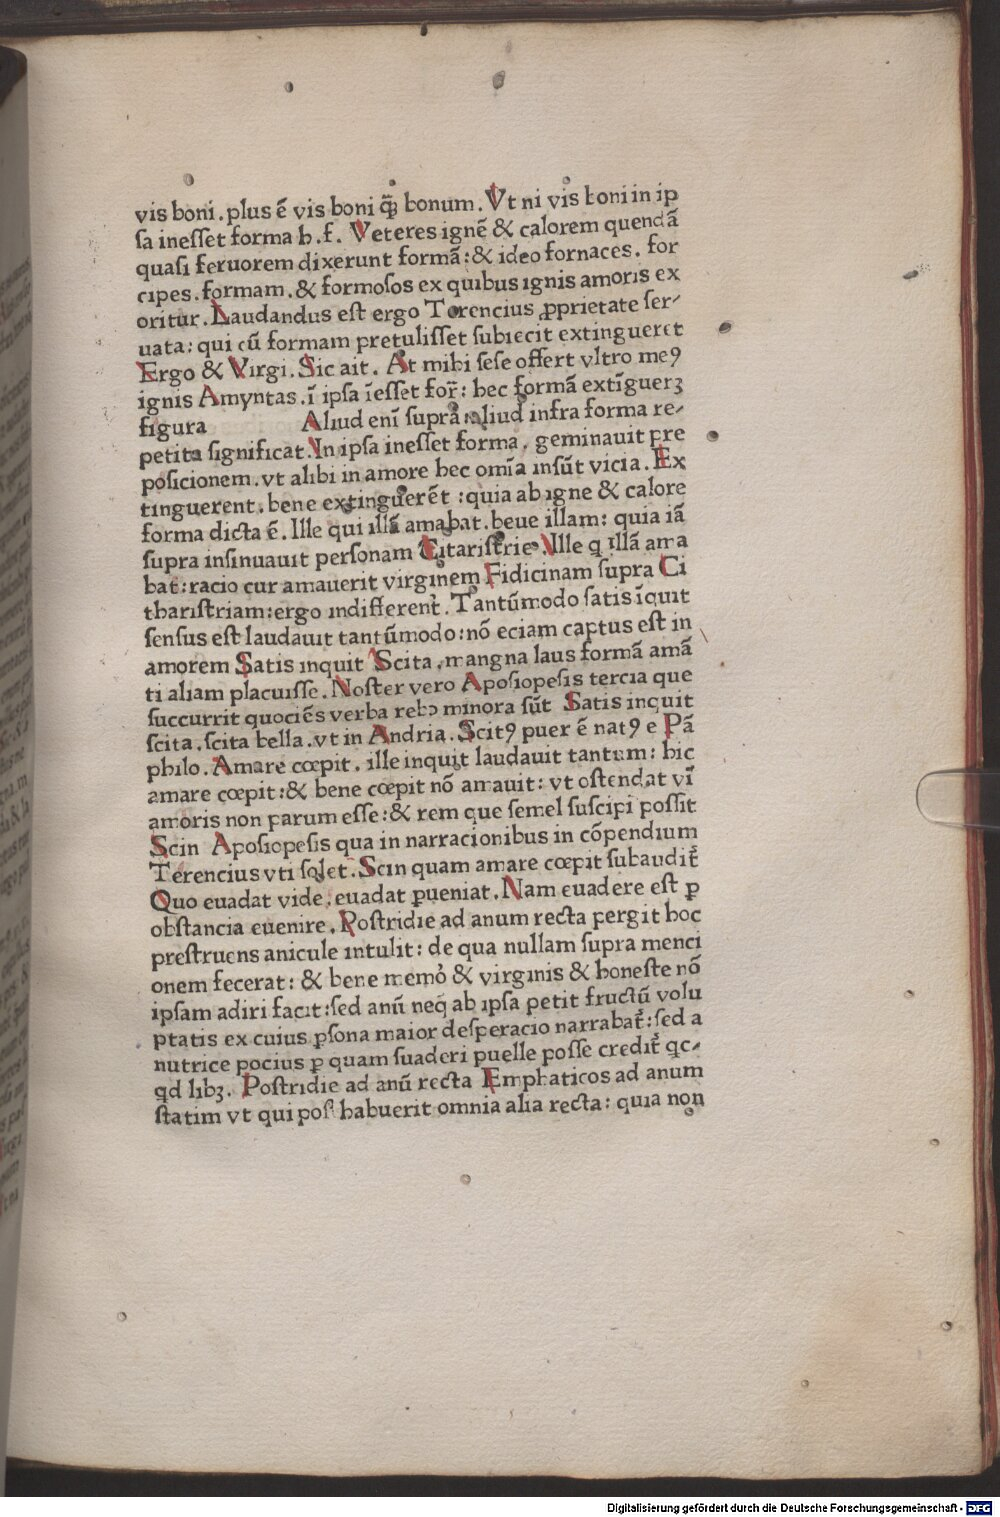 vis boni. plus ē vis boni q̄ꝫ bonum. Vt ni vis boni in ip
sa inesset forma h.f. Veteres ignē & calorem quendā
quasi feruorem dixerunt formā: & ideo fornaces. for
cipes. formam. & formosos ex quibus ignis amoris ex
oritur. Laudandus est ergo Terencius ꝓprietate ser-
uata: qui cū formam pretulisset subiecit extingueret
Ergo & Virgi. Sic ait. At mihi sese offert vltro meꝰ
ignis Amyntas. ī ipsa īesset for̄: hec formā extīguerꝫ
figura Aliud enī supra aliud infra forma re-
petita significat. In ipsa inesset forma. geminauit pre
posicionem. vt alibi in amore hec omīa insūt vicia. Ex
tinguerent. bene extinguerēt: quia ab igne & calore
forma dicta ē. Ille qui illā amabat. beue illam: quia iā
supra insinuauit personam Citaristrie. Ille q illā ama
bat: racio cur amauerit virginem Fidicinam supra Ci
tharistriam: ergo indifferent̄. Tantūmodo satis īquit
sensus est laudauit tantūmodo: nō eciam captus est in
amorem Satis inquit Scita. mangna laus formā amā
ti aliam placuisse. Noster vero Aposiopesis tercia que
succurrit quociēs verba reb ɔ minora sūt Satis inquit
scita. scita bella. vt in Andria. Scitꝰ puer ē natꝰ e Pā
philo. Amare cœpit. ille inquit laudauit tantum: hic
amare cœpit: & bene cœpit nō amauit: vt ostendat vī
amoris non parum esse: & rem que semel suscipi possit
Scin Aposiopesis qua in narracionibus in cōpendium
Terencius vti solet. Scin quam amare cœpit subaudit̄
Quo euadat vide. euadat ꝑueniat. Nam euadere est ꝑ
obstancia euenire. Postridie ad anum recta pergit hoc
prestruens anicule intulit: de qua nullam supra menci
onem fecerat: & bene memo̓ & virginis & honeste nō
ipsam adiri facit: sed anū neq̄ ab ipsa petit fructū volu
ptatis ex cuius ꝑsona maior desperacio narrabat̄: sed a
nutrice pocius ꝑ quam suaderi puelle posse credit̄ qc-
qd libꝫ. Postridie ad anū recta Emphaticos ad anum
statim vt qui pos̄ habuerit omnia alia recta: quia non
Digitalisierung gefördert durch die Deutsche Forschungsgemeinschaft - DFG